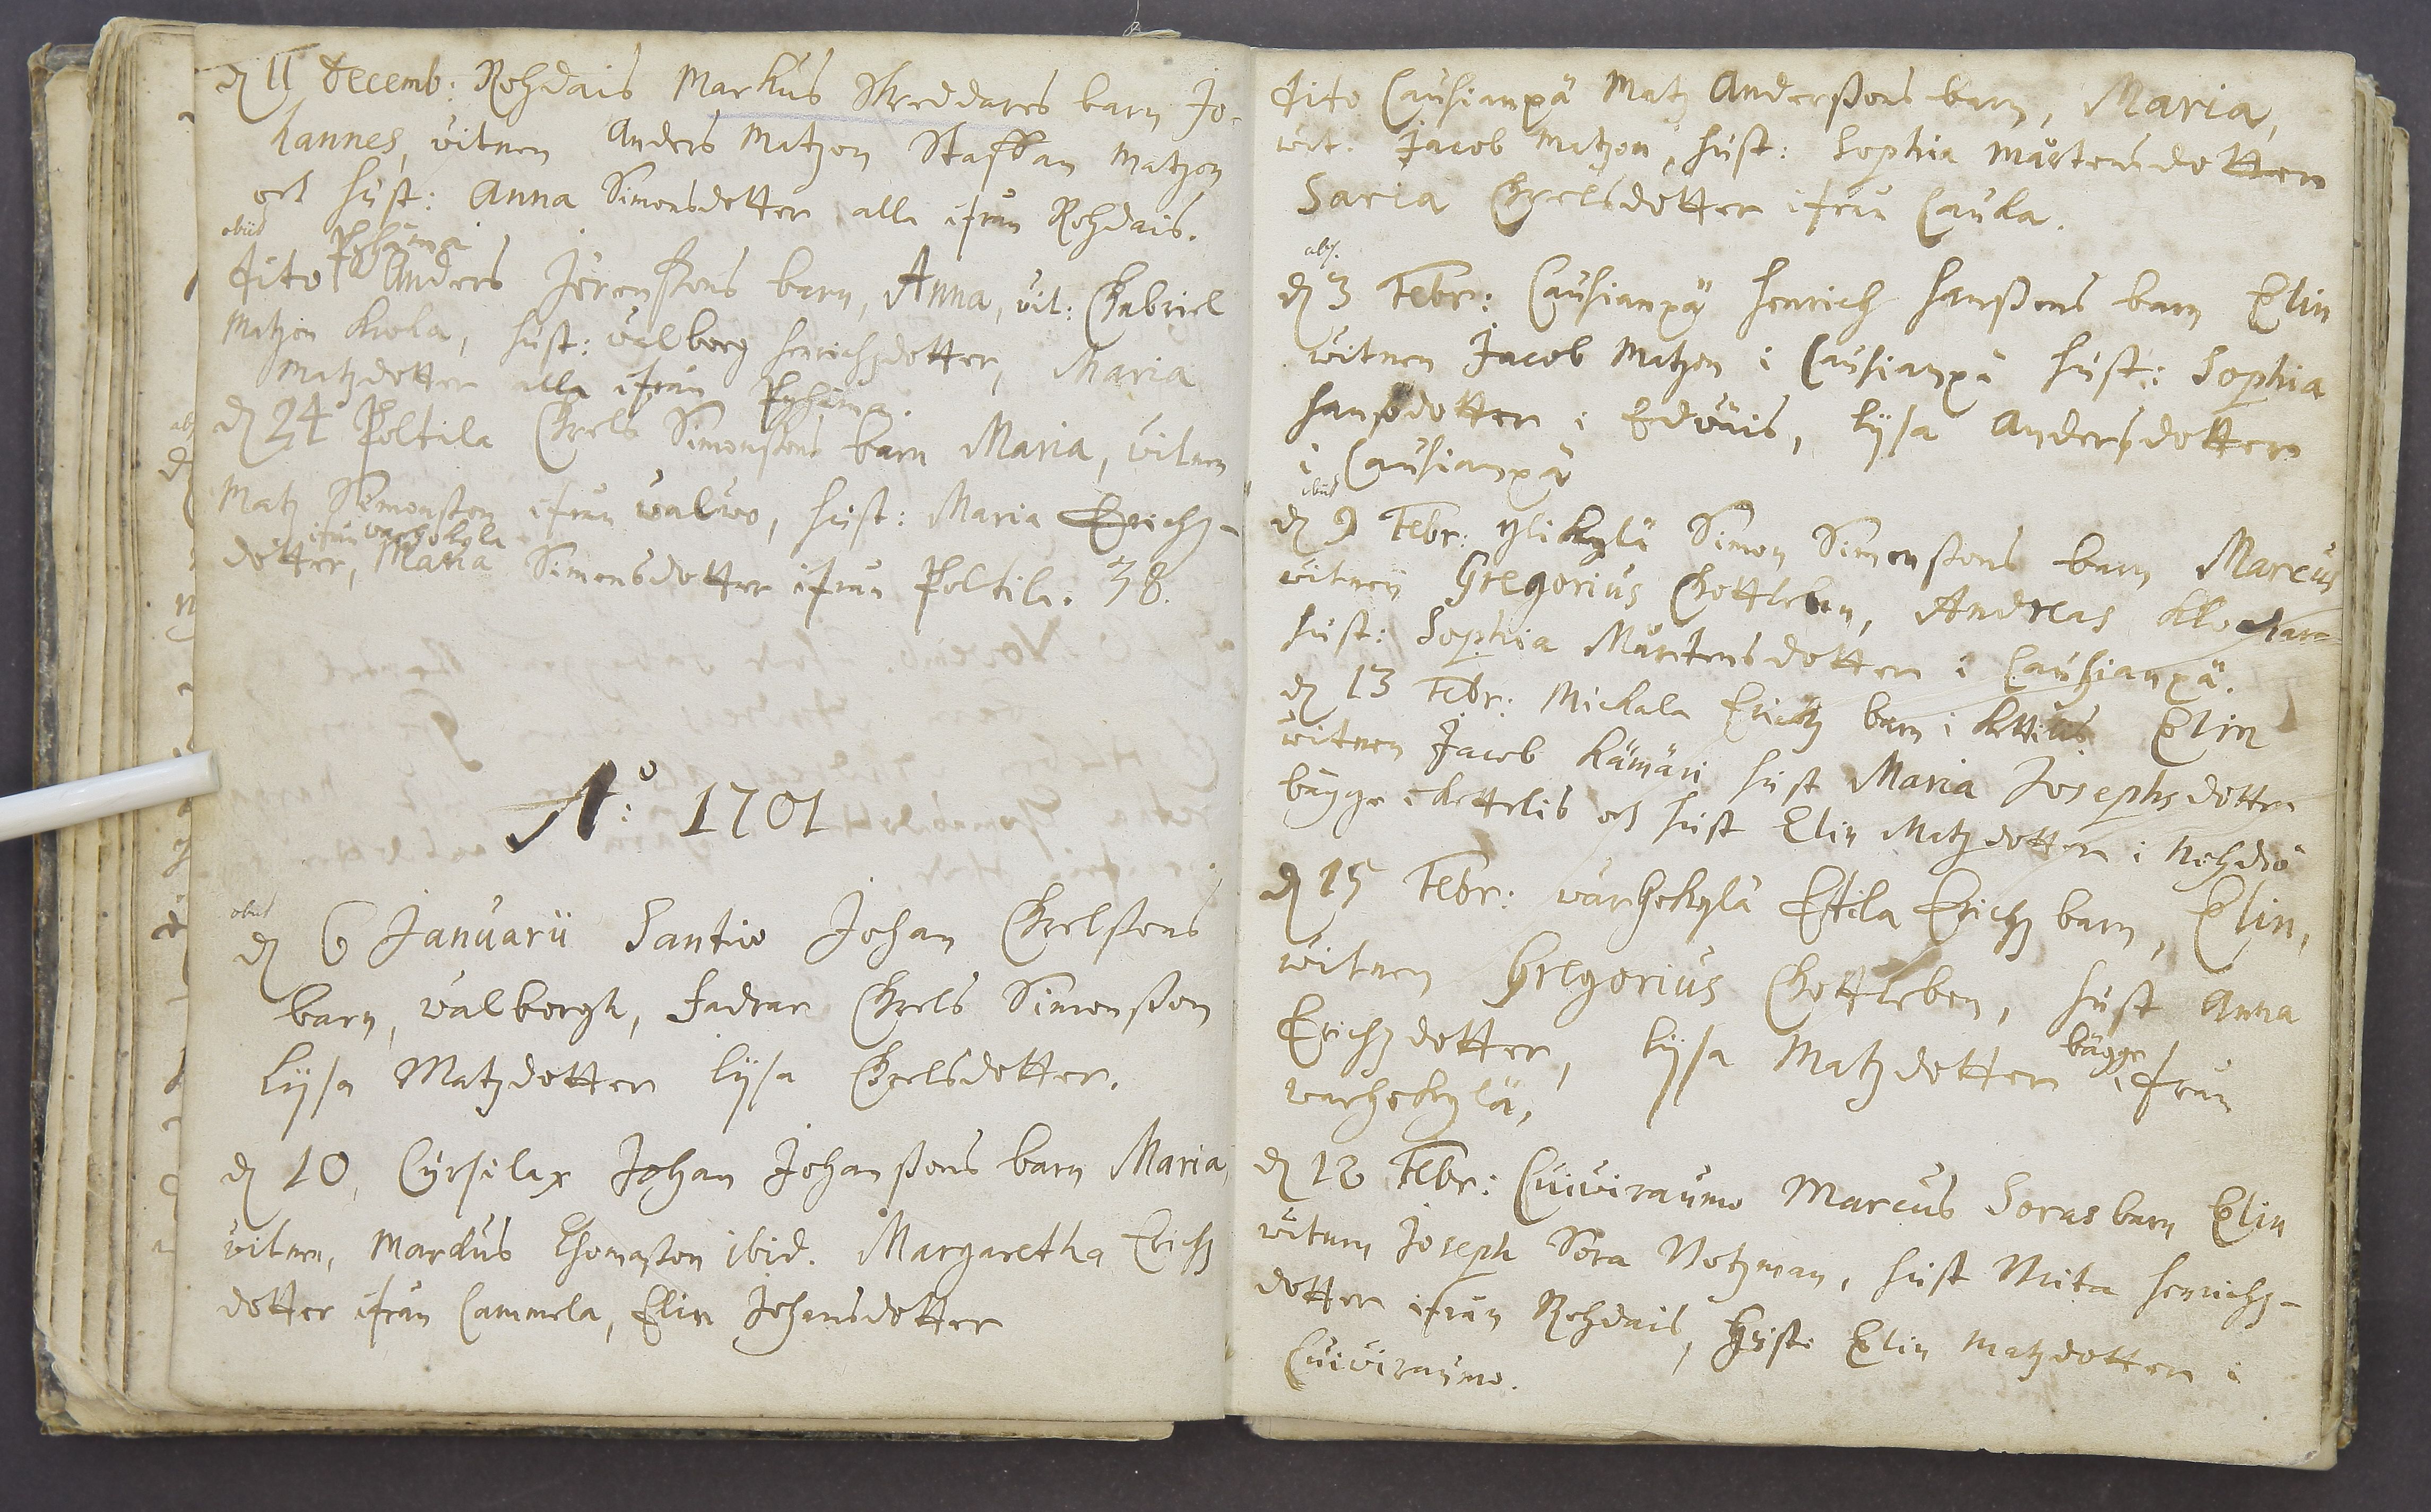 d 11 Decemb: Rohdais Markus Skreddares barn Jo-
hannes, vitnen Anders Matzon Staffan Matzon
och hust: Anna Simonsdotter alla ifrån Rohdais.
obiit
Pyhäma
dito Anders Jörenssons barn, Anna, vit: Gabriel
Matzon Krola, hust: Walborg Henrichzdotter, Maria
Matzdotter alla ifrån Pyhäma.
d 24 Poltila Grels Simonssons barn Maria, vitnen
Matz Simonsson ifrån Walwo, hust: Maria Erichz-
ifrån Warhokyla
dotter, Maria Simonsdotter ifrån Poltila. 38.
A:o 1701
obiit
d 6 Januarii Santio Johan Grelssons
barn, Walborgh, fadrar Grels Simonsson
Lijsa Matzdotter Lijsa Grelsdotter.
d 10, Cursilax Johan Johanssons barn Maria,
vitnen, Markus Thomasson ibid. Margaretha Erichz
dotter ifrån Cammela, Elin Johansdotter
dito Causianpä Matz Anderssons barn, Maria,
wit. Jacob Matzon, hust: Sophia Mårtensdotter
Saria Grelsdotter ifrån Cauka.
abs.
d 3 Febr: Causianpä Henrich Hanssons barn Elin
witnen Jacob Matzon i Causianpä hust: Sophia
Hansdotter i Edwäis, Lijsa Andersdotter
i Causianpä
obiit
d 9 Febr: Ylikylä Simon Simonssons barn Marcus
witnen Gregorius Gottleben, Andreas Klockare
hust: Sophia Mårtensdotter i Causianpä.
d 13 Febr: Mickala Erichz barn i Kettelis Elin
witnen Jacob Kämäri hust Maria Josephsdotter
bägge i Kettelis och hust Elin Matzdotter i Nohdiö
d 15 Febr: Warhokylä Eskila Erichz barn, Elin,
witnen Gregorius Gottleben, hust Anna
Erichzdotter, Lijsa Matzdotter bägge ifrån
Warhokylä,
d 18 Febr: Cuiviraumo Marcus Soras barn Elin
witnen Joseph Sora Notzman, hust Brita Henrichz-
dotter ifrån Rohdais, Hust: Elin Matzdotter i
Cuiviraumo.